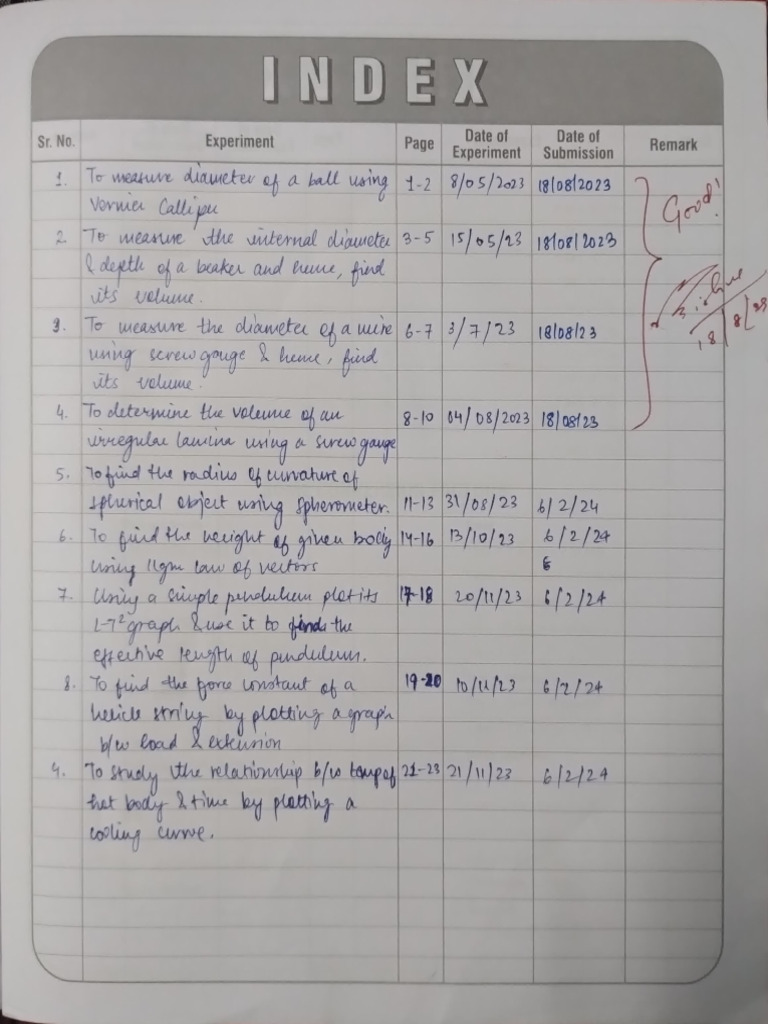 INDEX
Sr. No. Experiment Page Date of Experiment Date of Submission Remark
1. To measure diameter of a ball using 1-2 8/05/2023 18/08/2023
Vernier Calliper
Good!
2. To measure the internal diameter 3-5 15/05/23 18/08/2023
& depth of a beaker and hence, find
its volume.
3. To measure the diameter of a wire 6-7 3/7/23 18/08/23
using screw gauge & hence, find
its volume.
18/8/23
4. To determine the volume of an 8-10 04/08/2023 18/08/23
irregular lamina using a screw gauge
5. To find the radius of curvature of
spherical object using spherometer. 11-13 31/08/23 6/2/24
6. To find the weight of given body 14-16 13/10/23 6/2/24
using llgm law of vectors
7. Using a simple pendulum plot its 17-18 20/11/23 6/2/24
L-T² graph & use it to find the
effective length of pendulum.
8. To find the force constant of a 19-20 10/11/23 6/2/24
helicle string by plotting a graph
b/w load & extension
9. To study the relationship b/w temp of 21-23 21/11/23 6/2/24
hot body & time by plotting a
cooling curve.